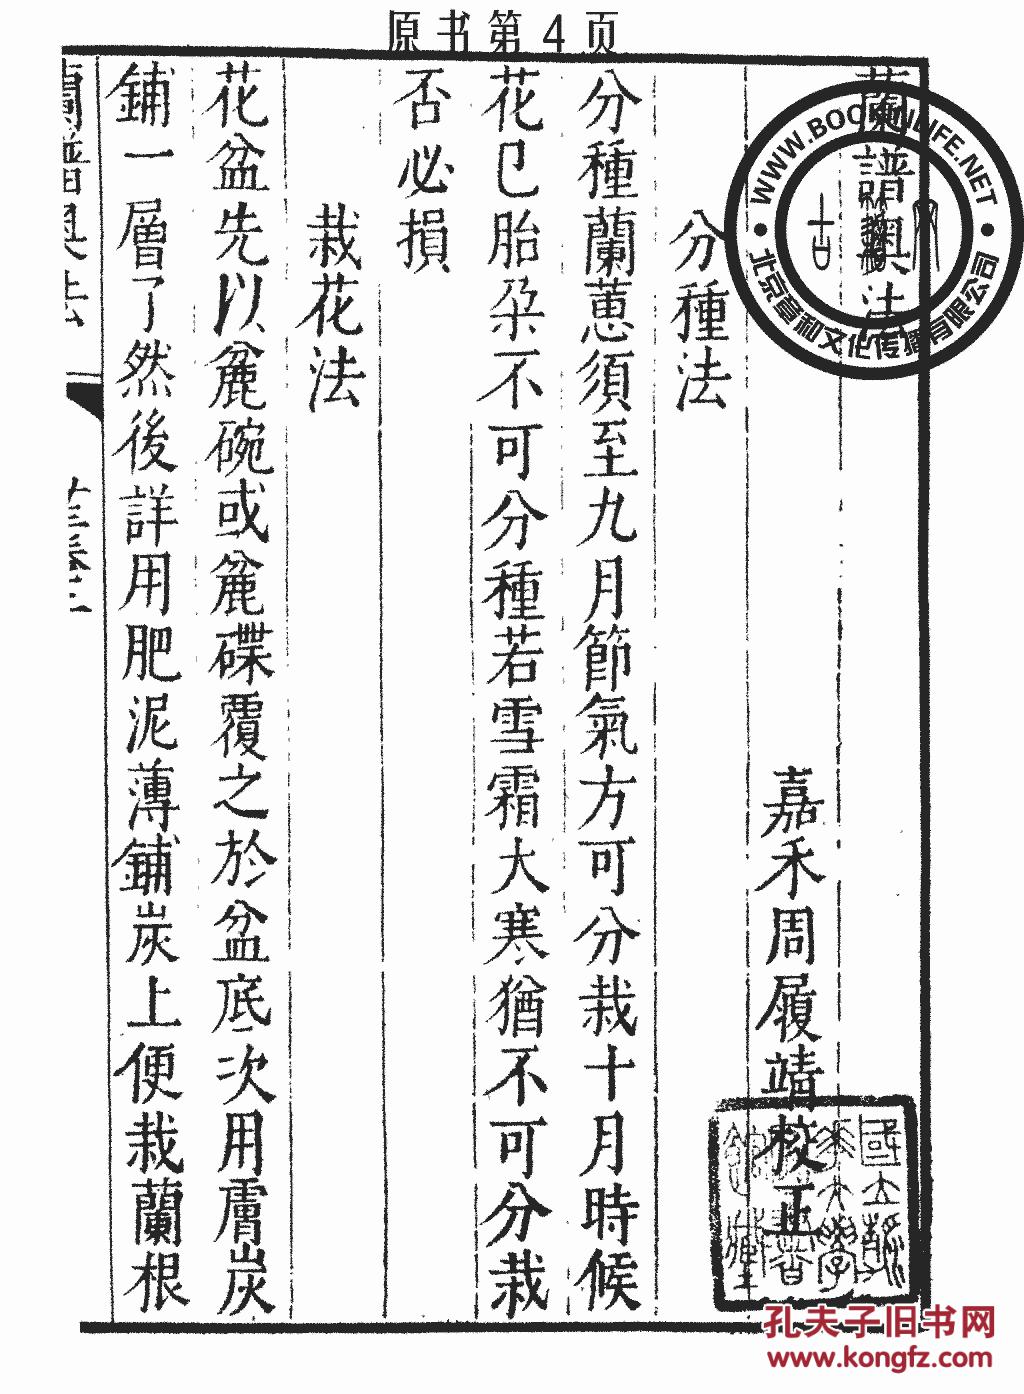 原书第4页
蘭譜奧法
嘉禾周履靖校正
分種法
分種蘭蕙須至九月節氣方可分栽十月時候
花已胎朶不可分種若雪霜大寒猶不可分栽
否必損
栽花法
花盆先以麄碗或麄碟覆之於盆底次用膚炭
鋪一層了然後詳用肥泥薄鋪炭上便栽蘭根
蘭譜奧法
WWW.BOOKINLIFE.NET
北京章和文化传播有限公司
孔夫子旧书网
www.kongfz.com